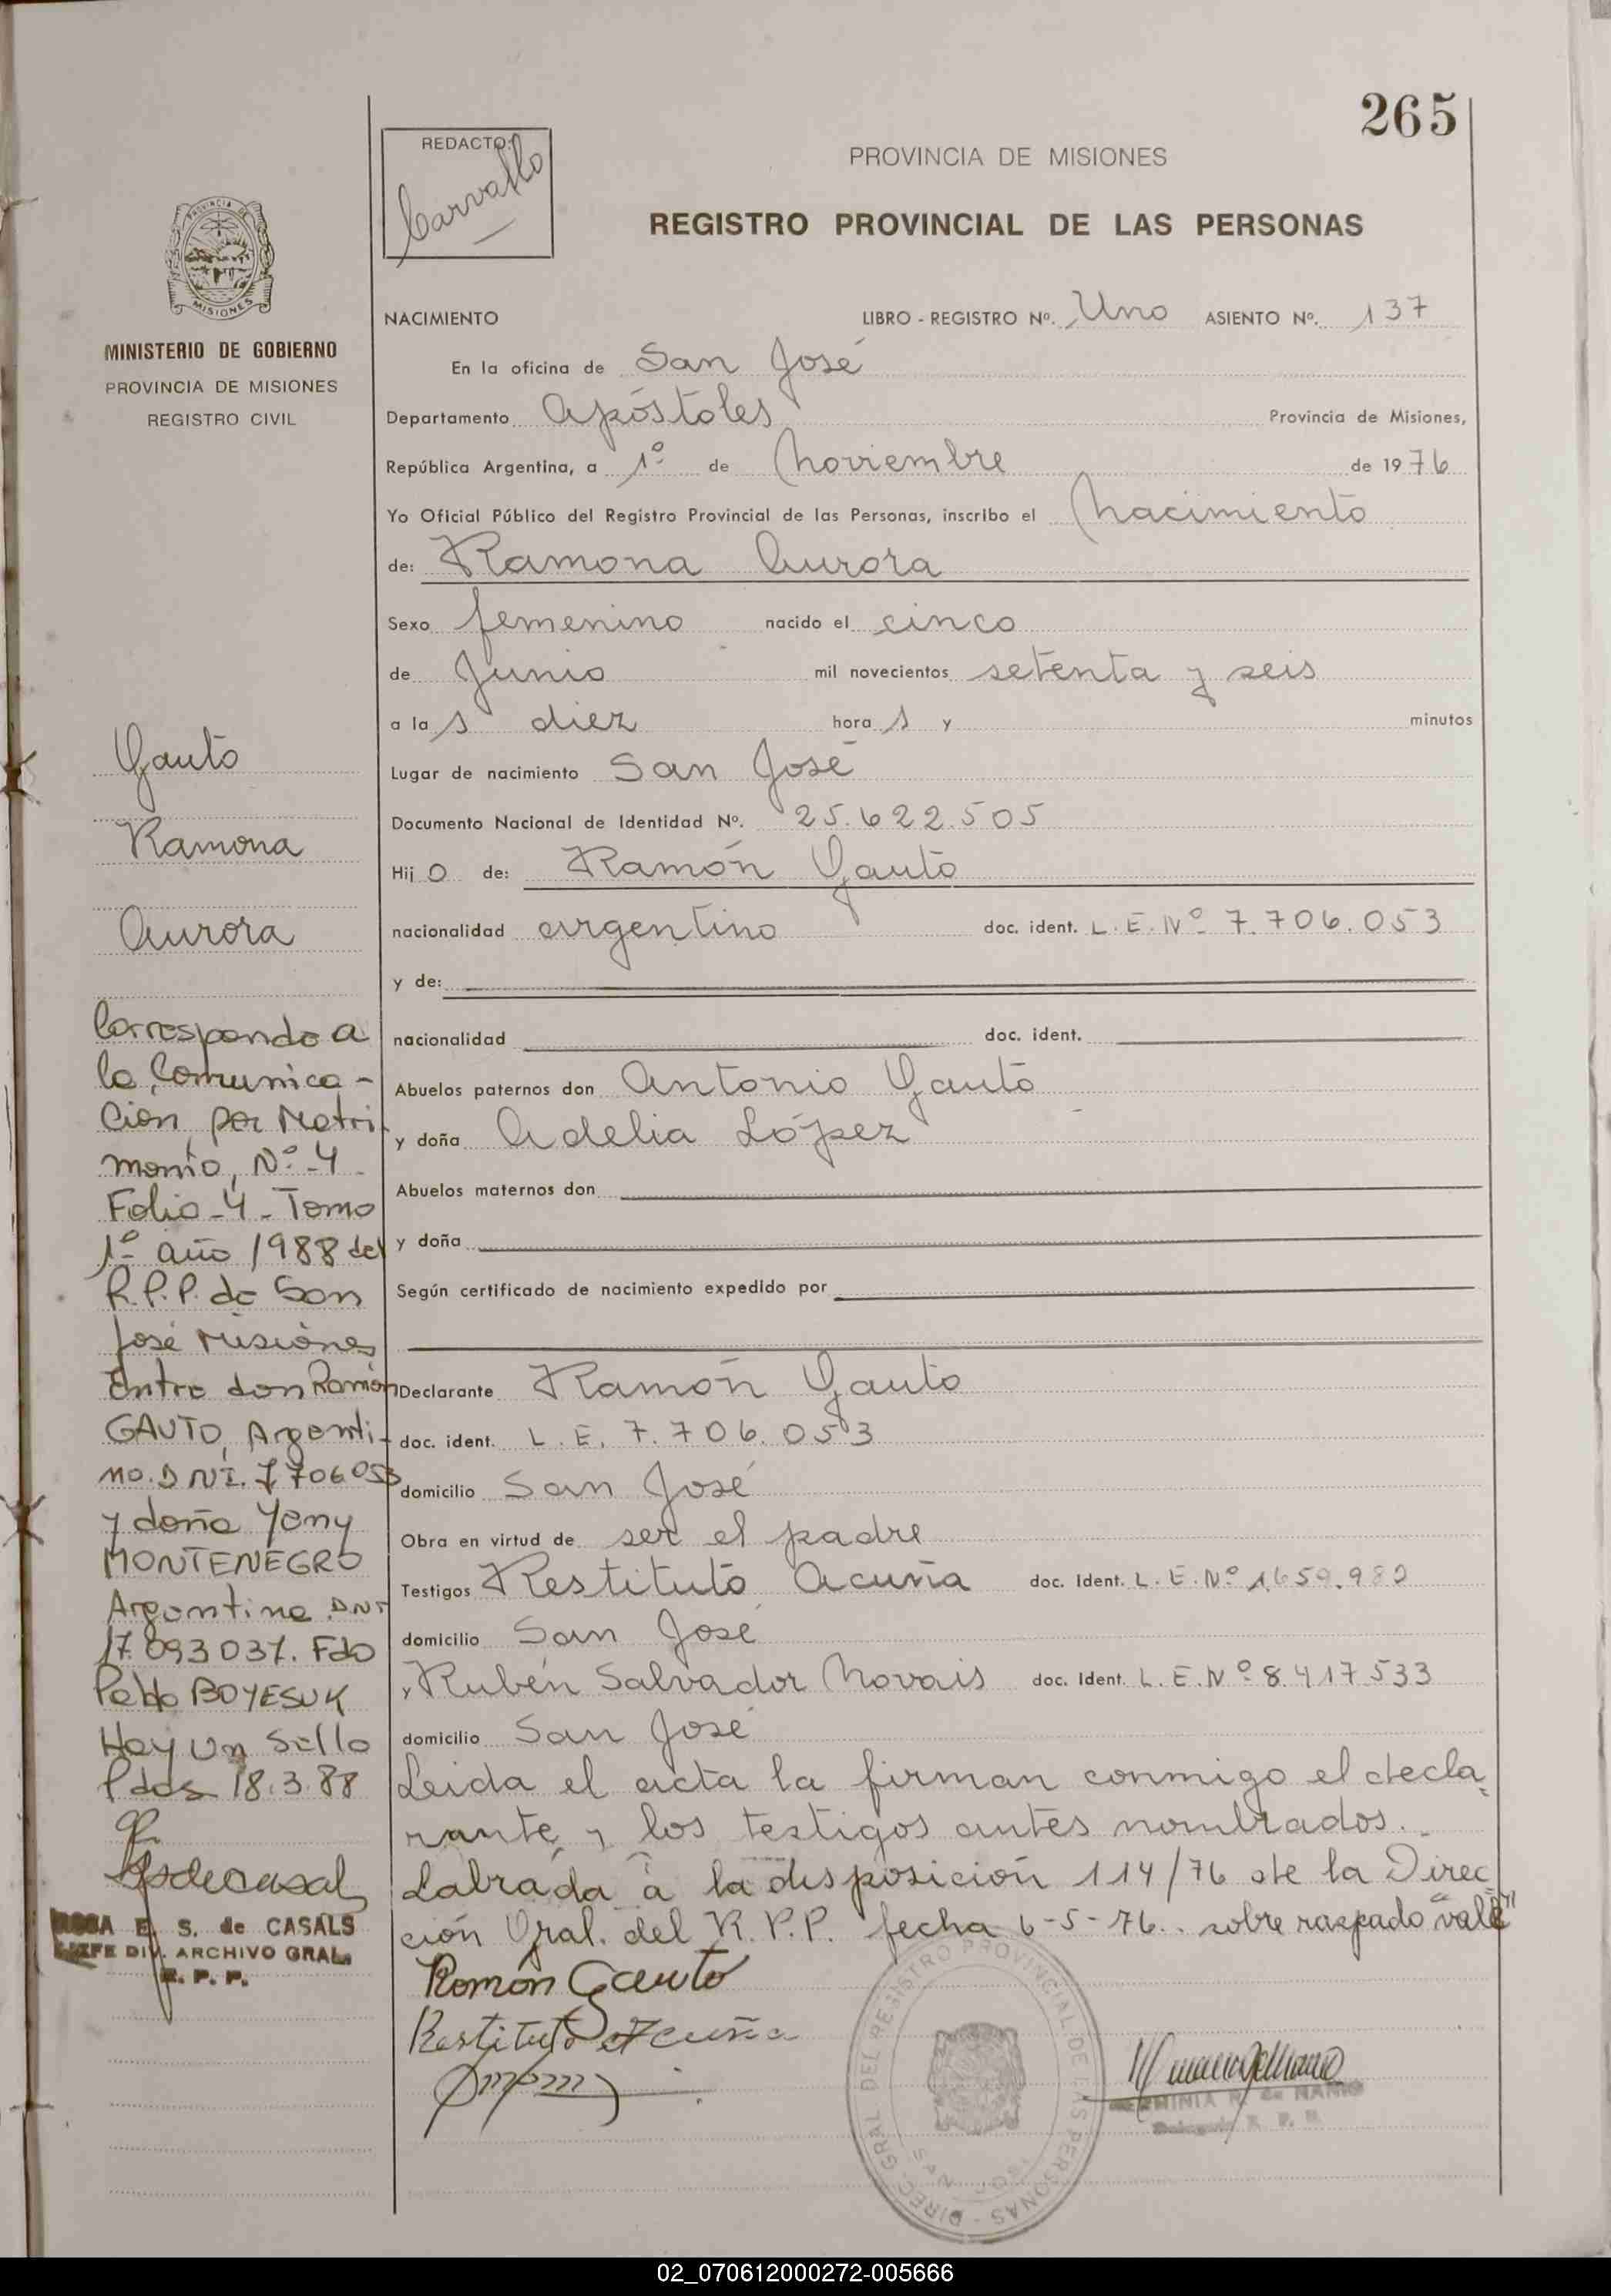 265
REDACTO:
Carvallo
PROVINCIA DE MISIONES
REGISTRO PROVINCIAL DE LAS PERSONAS
PROVINCIA DE
MISIONES
MINISTERIO DE GOBIERNO
PROVINCIA DE MISIONES
REGISTRO CIVIL
NACIMIENTO LIBRO - REGISTRO Nº. Uno ASIENTO Nº. 137
En la oficina de San José
Departamento Apóstoles Provincia de Misiones,
República Argentina, a 1º de Noviembre de 1976
Yo Oficial Público del Registro Provincial de las Personas, inscribo el Nacimiento
de: Ramona Aurora
Sexo femenino nacido el cinco
de Junio mil novecientos setenta y seis
a las diez horas y minutos
Lugar de nacimiento San José
Documento Nacional de Identidad Nº. 25.622.505
Hijo de: Ramón Gauto
nacionalidad argentino doc. ident. L.E.Nº 7.706.053
y de:
nacionalidad doc. ident.
Abuelos paternos don Antonio Gauto
y doña Adelia López
Abuelos maternos don
y doña
Según certificado de nacimiento expedido por
Declarante Ramón Gauto
doc. ident. L.E. 7.706.053
domicilio San José
Obra en virtud de ser el padre
Testigos Restituto Acuña doc. Ident. L.E.Nº 1.659.982
domicilio San José
y Rubén Salvador Novais doc. Ident. L.E.Nº 8.417.533
domicilio San José
Leida el acta la firman conmigo el decla-
rante y los testigos antes nombrados.
Labrada a la disposición 114/76 de la Direc
ción Gral. del R.P.P. fecha 6-5-76.. sobre raspado vale"
Ramón Gauto
Restituto Acuña
DIREC. GRAL. DEL REGISTRO PROVINCIAL DE LAS PERSONAS
SAN JOSE
HERMINIA R. de
Delegada R. P. P.
Gauto
Ramona
Aurora
Corresponde a
la Comunica-
ción por Matri
monio, Nº-4
Folio-4-Tomo
1º año 1988 del
R.P.P. de San
José Misiones
Entre don Ramón
GAUTO, Argenti-
no. DNI. 7706053
y doña Yony
MONTENEGRO
Argentina DNI
17.093037. Fdo
Pablo BOYESUK
Hay un Sello
Pdas 18.3.88
ROSA E. S. de CASALS
JEFE DIV. ARCHIVO GRAL.
R. P. P.
02_070612000272-005666